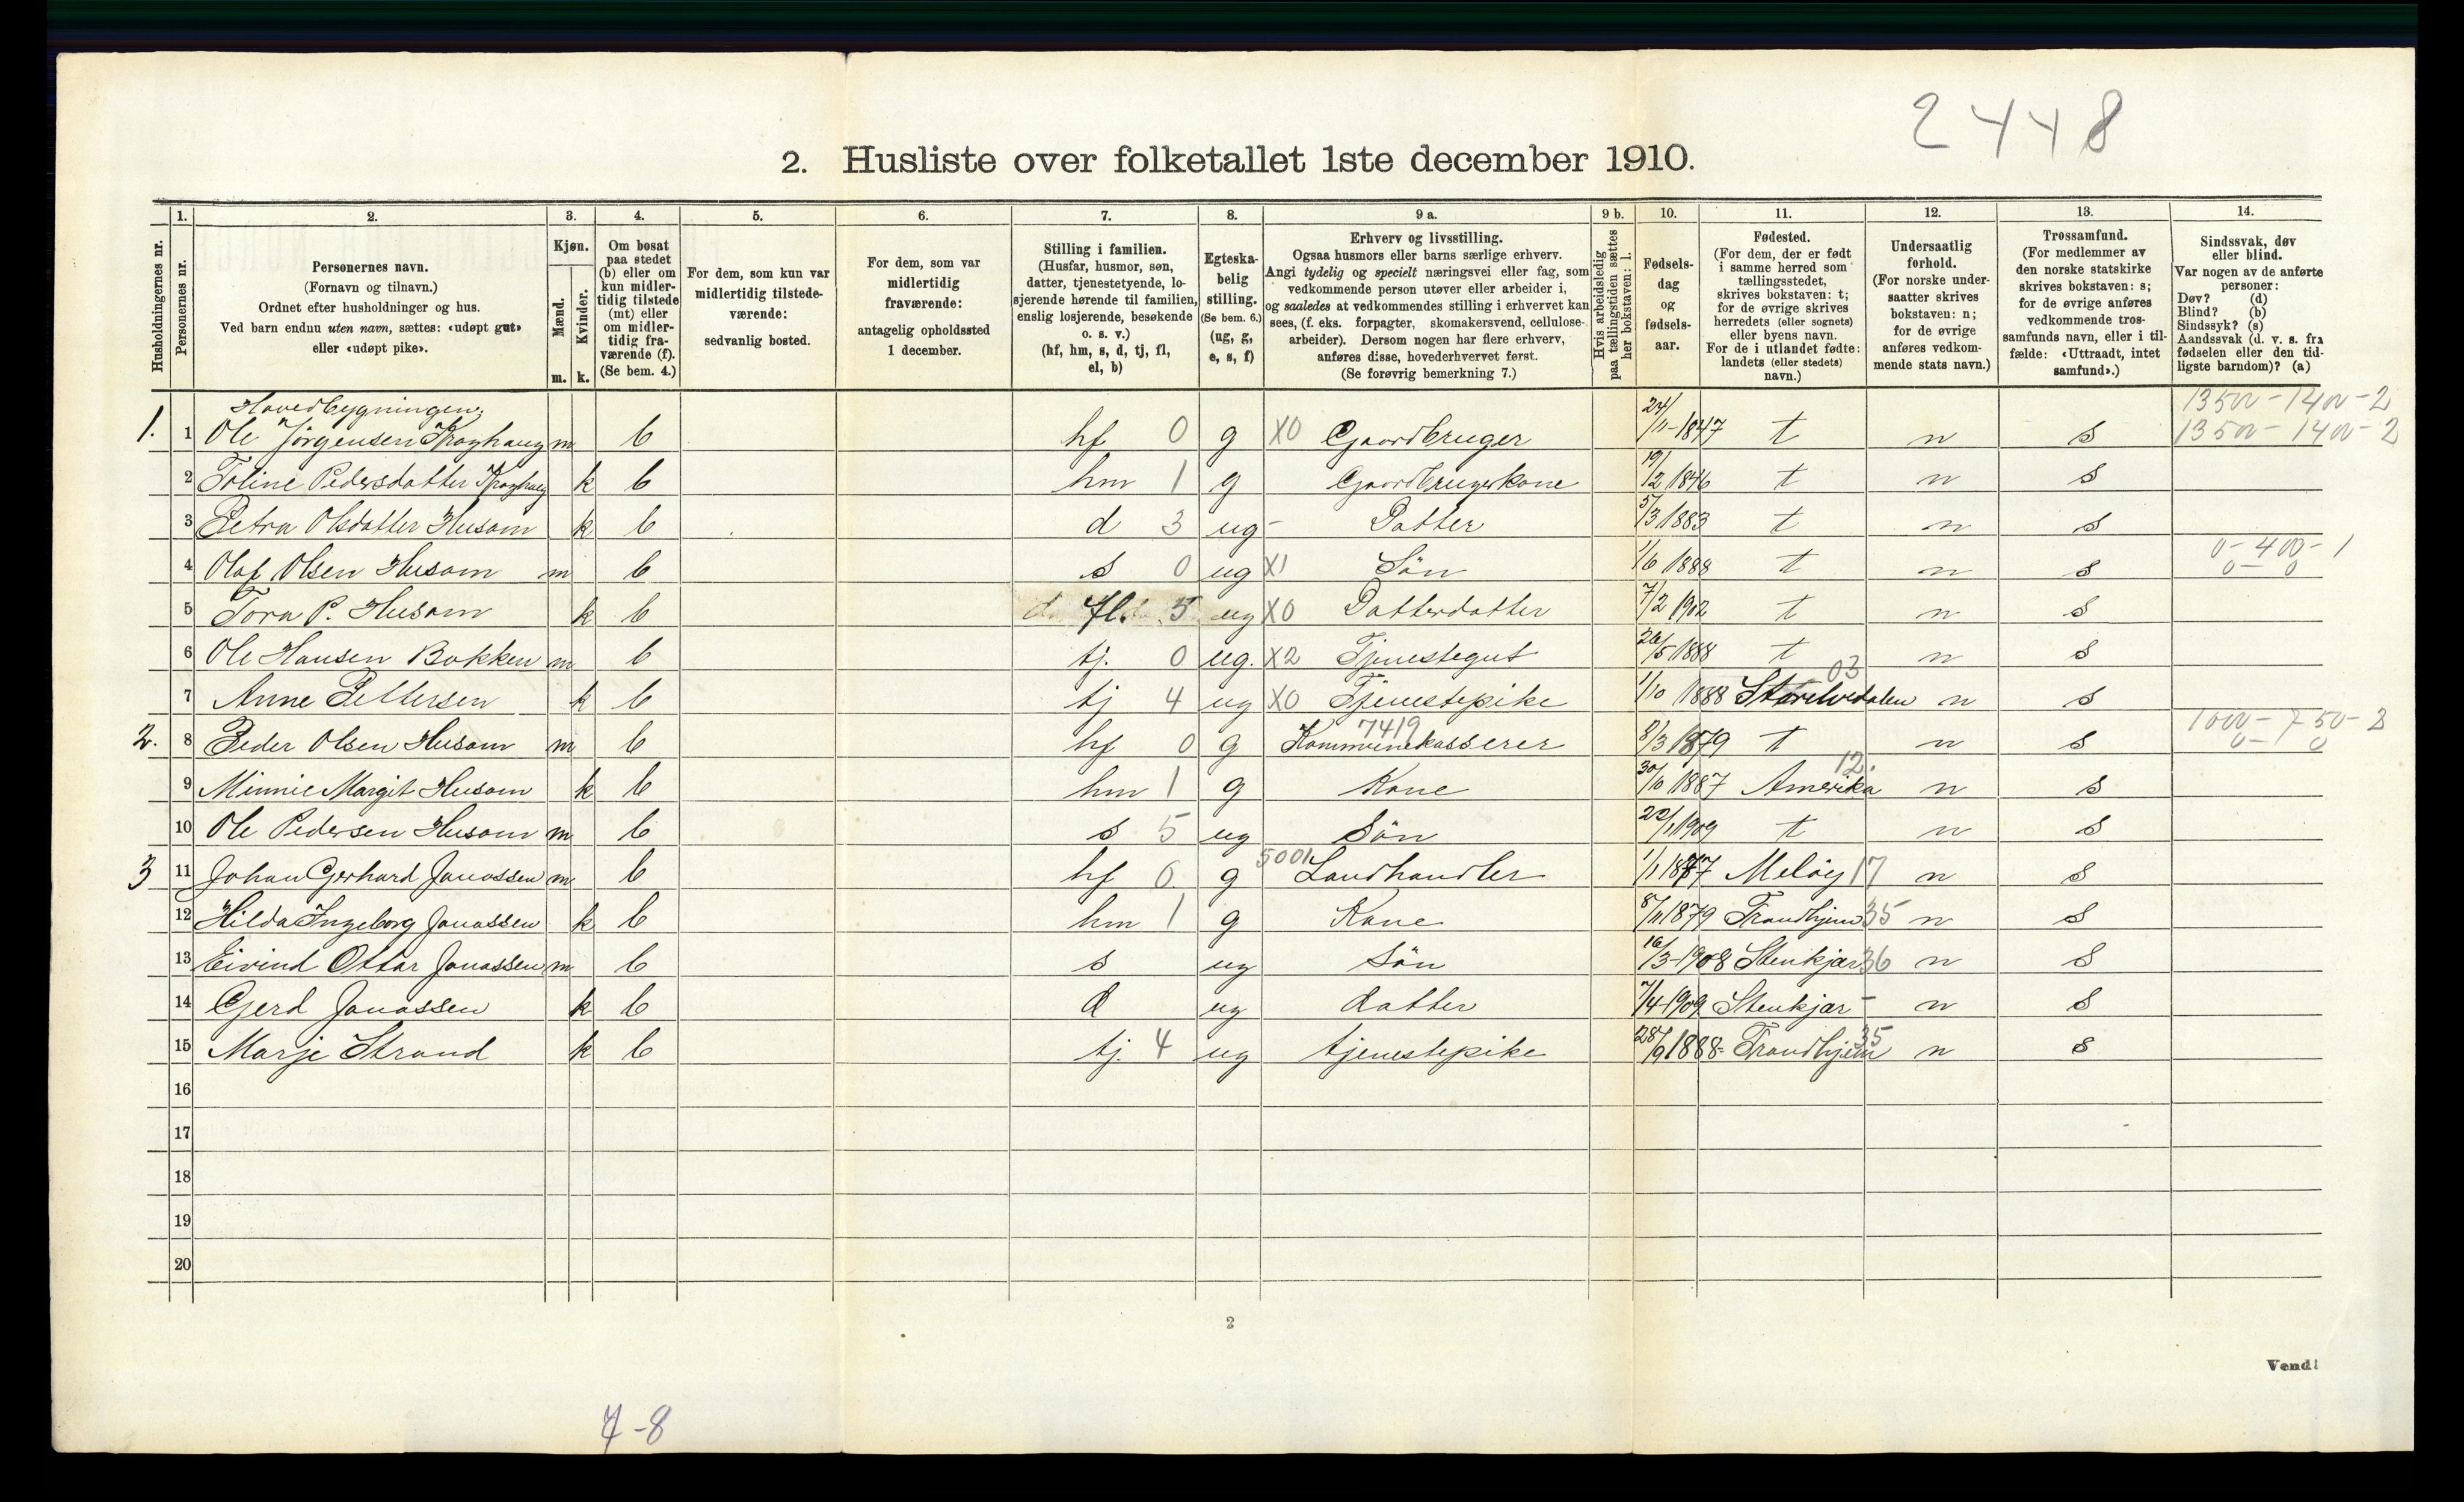 2448
2. Husliste over folketallet 1ste december 1910.
Husholdningernes nr.
1. Personernes nr.
2. Personernes navn. (Fornavn og tilnavn.) Ordnet efter husholdninger og hus. Ved barn endnu uten navn, sættes: «udøpt gut» eller «udøpt pike».
3. Kjøn. Mænd. m. Kvinder. k.
4. Om bosat paa stedet (b) eller om kun midlertidig tilstede (mt) eller om midlertidig fraværende (f). (Se bem. 4.)
5. For dem, som kun var midlertidig tilstedeværende: sedvanlig bosted.
6. For dem, som var midlertidig fraværende: antagelig opholdssted 1 december.
7. Stilling i familien. (Husfar, husmor, søn, datter, tjenestetyende, losjerende hørende til familien, enslig losjerende, besøkende o. s. v.) (hf, hm, s, d, tj, fl, el, b)
8. Egteskabelig stilling. (Se bem. 6.) (ug, g, e, s, f)
9 a. Erhverv og livsstilling. Ogsaa husmors eller barns særlige erhverv. Angi tydelig og specielt næringsvei eller fag, som vedkommende person utøver eller arbeider i, og saaledes at vedkommendes stilling i erhvervet kan sees, (f. eks. forpagter, skomakersvend, cellulosearbeider). Dersom nogen har flere erhverv, anføres disse, hovederhvervet først. (Se forøvrig bemerkning 7.)
9 b. Hvis arbeidsledig paa tællingstiden sættes her bokstaven: l.
10. Fødselsdag og fødselsaar.
11. Fødested. (For dem, der er født i samme herred som tællingsstedet, skrives bokstaven: t; for de øvrige skrives herredets (eller sognets) eller byens navn. For de i utlandet fødte: landets (eller stedets) navn.)
12. Undersaatlig forhold. (For norske undersaatter skrives bokstaven: n; for de øvrige anføres vedkommende stats navn.)
13. Trossamfund. (For medlemmer av den norske statskirke skrives bokstaven: s; for de øvrige anføres vedkommende trossamfunds navn, eller i tilfælde: «Uttraadt, intet samfund».)
14. Sindssvak, døv eller blind. Var nogen av de anførte personer: Døv? (d) Blind? (b) Sindssyk? (s) Aandssvak (d. v. s. fra fødselen eller den tidligste barndom)? (a)
Hovedbygningen; 13500-1400-2
1. 1 Ole Jørgensen Kroghaug m b hf 0 g X0 Gaardbruger 24/11-1847 t n s 13500-1400-2
2 Toline Pedersdatter Kroghaug k b hm 1 g Gaardbrugerkone 19/12 1846 t n s
3 Petra Olsdatter Husom k b d 3 ug - Datter 5/3 1883 t n s
4 Olaf Olsen Husom m b s 0 ug X1 Søn 1/6 1888 t n s 0-400-1 0-0
5 Tora P. Husom k b fl. 5 ug X0 Datterdatter 7/2 1902 t n s
6 Ole Hansen Bakken m b tj. 0 ug. X2 Tjenestegut 26/5 1888 t n s
7 Anne Pettersen k b tj 4 ug X0 Tjenestepike 1/10 1888 03 n s
2. 8 Peder Olsen Husom m b hf 0 g 7419 Kommunekasserer 8/3 1879 t n s 1000-750-2 0-0
9 Minnie Margit Husom k b hm 1 g Kone 30/10 1887 Amerika 12. n s
10 Ole Pedersen Husom m b s 5 ug Søn 22/1 1909 t n s
3 11 Johan Gerhard Jonassen m b hf 0. g 5001 Landhandler 1/1 1877 Meløy 17 n s
12 Hilda Ingeborg Jonassen k b hm 1 g Kone 8/11 1879 Trondhjem 35 n s
13 Eivind Ottar Jonassen m b s ug Søn 16/3-1908 Stenkjær 36 n s
14 Gerd Jonassen k b d ug datter 7/4-1909 Stenkjær - n s
15 Marje Strand k b tj. 4 ug tjenestepike 28/9 1888- Trondhjem 35 n s
16
17
18
19
20
2
Vend!
7-8